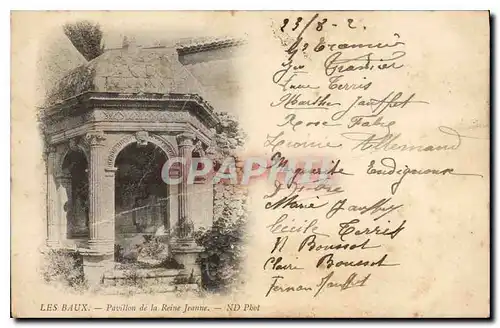 23/8-2.
G Tramier
Tramier
Terris
Marthe Jauffret
Rose Fabre
Léonie Allemand
Marguerite Endignoux
CPARAMA
Marie Jauffret
Cécile Terris
N Boussot
Claire Boussot
Fernan Jauffret
LES BAUX. — Pavillon de la Reine Jeanne. — ND Phot